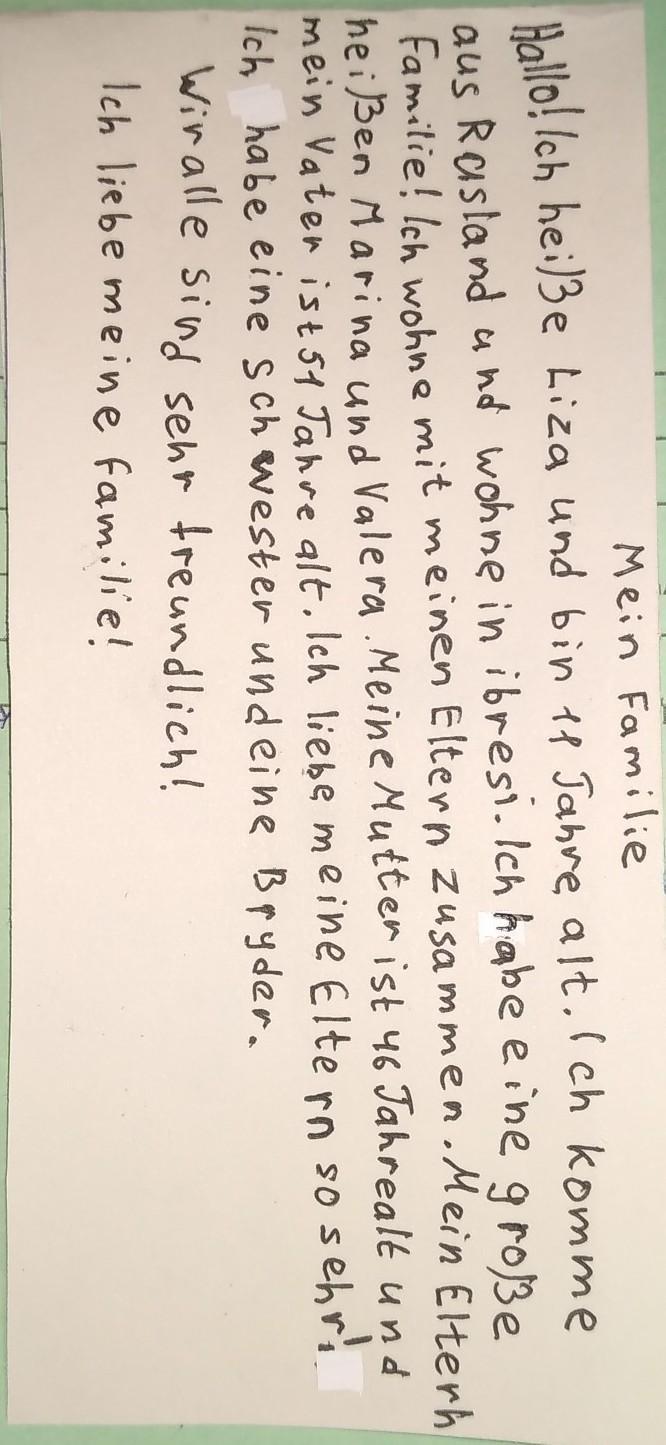 Mein Familie
Hallo! Ich heiße Liza und bin 11 Jahre alt. Ich komme
aus Rusland und wohne in ibresi. Ich habe eine große
Familie! Ich wohne mit meinen Eltern zusammen. Mein Eltern
heißen Marina und Valera. Meine Mutter ist 46 Jahre alt und
mein Vater ist 51 Jahre alt. Ich liebe meine Eltern so sehr!
Ich habe eine schwester und eine Bryder.
Wir alle sind sehr freundlich!
Ich liebe meine familie!